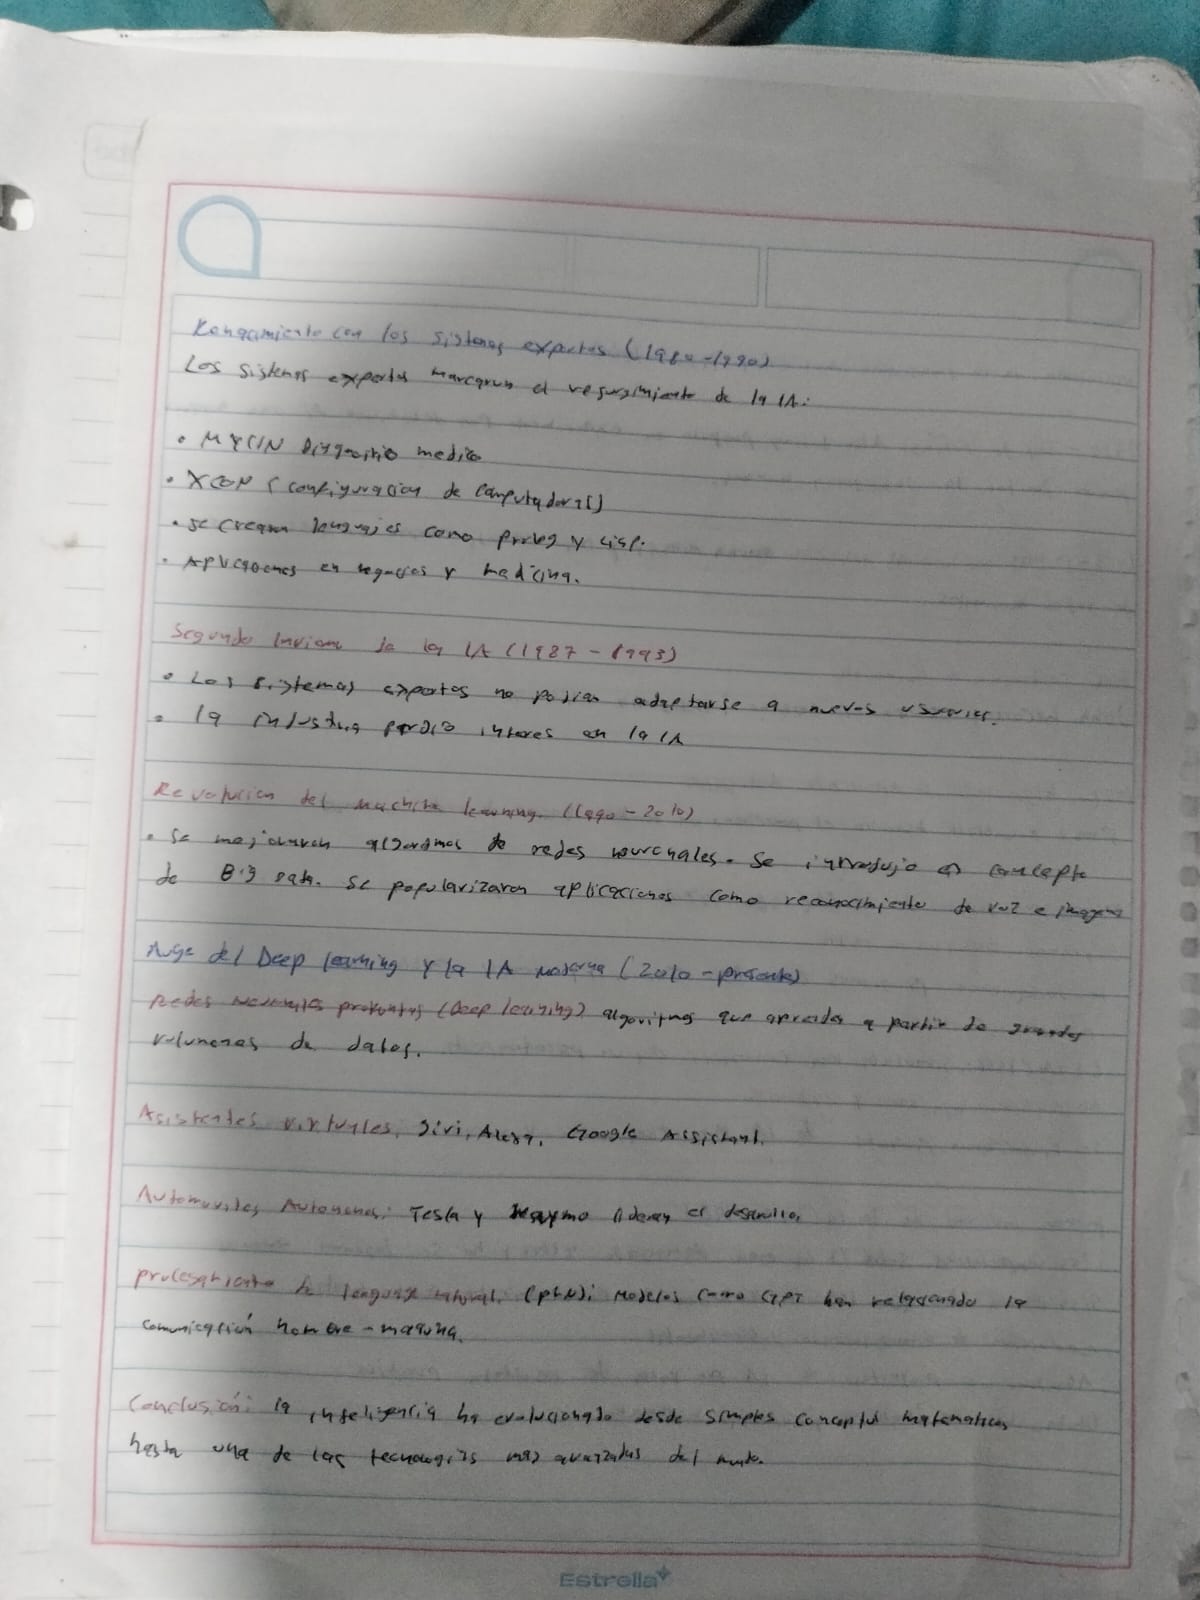 Renacimiento con los sistemas expertos (1980-1990)
Los sistemas expertos marcaron el resurgimiento de la IA:
• MYCIN Diagnostio medico
• XCON (configuracion de computadoras)
• se crearon lenguajes como prolog y Lisp.
• Aplicaciones en negocios y medicina.
Segundo Invierno de la IA (1987-1993)
• Los sistemas expertos no podian adaptarse a nuevos usuarios.
• la industria perdio interes en la IA
Revolucion del machine learning. (1990-2010)
• se mejoraron algoritmos de redes neuronales. Se introdujo el concepto
de Big data. se popularizaron aplicaciones como reconocimiento de voz e imagenes
Auge del Deep learning y la IA moderna (2010-presente)
Redes neuronales profundas (Deep learning) algoritmos que aprenden a partir de grandes
volumenes de datos.
Asistentes virtuales, Siri, Alexa, Google Assistant.
Automoviles Autonomos: Tesla y Waymo lideran el desarrollo.
procesamiento de lenguaje natural. (PLN): Modelos como GPT han la
comunicación hombre-maquina.
Conclusión: la inteligencia ha evolucionado desde simples conceptos matematicos
hasta una de las tecnologias mas avanzadas del mundo.
Estrella